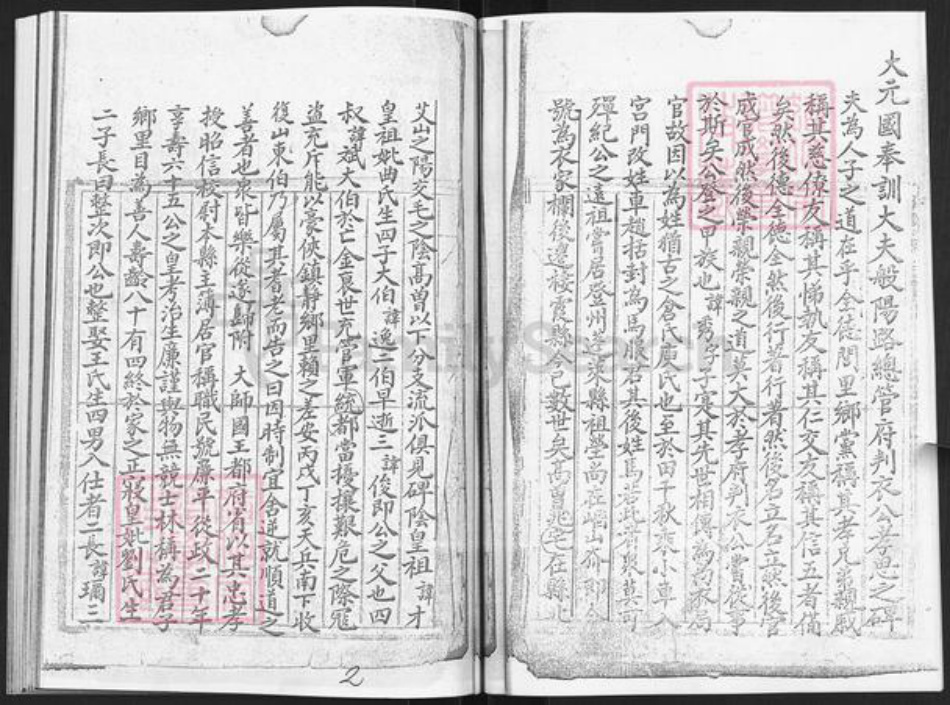 大元國奉訓大夫般陽路總管府判衣公孝思之碑
夫為人子之道在乎全徒閭里鄉黨稱其孝兄弟親戚
稱其慈僚友稱其悌執友稱其仁交友稱其信五者備
矣然後德全德全然後行著行著然後名立名立然後官
成官成然後榮親榮親之道莫大於孝府判衣公嘗從事
於斯矣公登之甲族也諱秀字子寔其先世相傳為尚衣局
官故因以為姓猶古之倉氏庾氏也至於田千秋乘小車入
宮門改姓車趙括封為馬服君其後姓馬若此者眾莫可
殫紀公之遠祖嘗居登州萊東縣祖塋尚在嵋山夼即今
號為衣家欄後遷棲霞縣今已數世矣高曾兆宅在縣北
艾山之陽交毛之陰高曾以下分支流派俱見碑陰皇祖諱才
皇祖妣曲氏生四子大伯諱逸二伯早逝三諱俊即公之父也四
叔諱斌大伯於亡金衰世充官軍統都當擾攘艱危之際冦
盜充斥能以豪俠鎮靜鄉里賴之差安丙戌丁亥天兵南下收
復山東伯乃屬其耆老而告之曰因時制宜舍逆就順道之
善者也衆皆樂從遂歸附大師國王都府省以其忠孝
授昭信校尉本縣主薄居官稱職民號廉平從政二十年
享壽六十五公之皇考治生廉謹與物無競士林稱為君子
鄉里目為善人壽齡八十有四終於家之正寢皇妣劉氏生
二子長曰整次即公也整娶王氏生四男入仕者二長諱珮三
2
FamilySearch